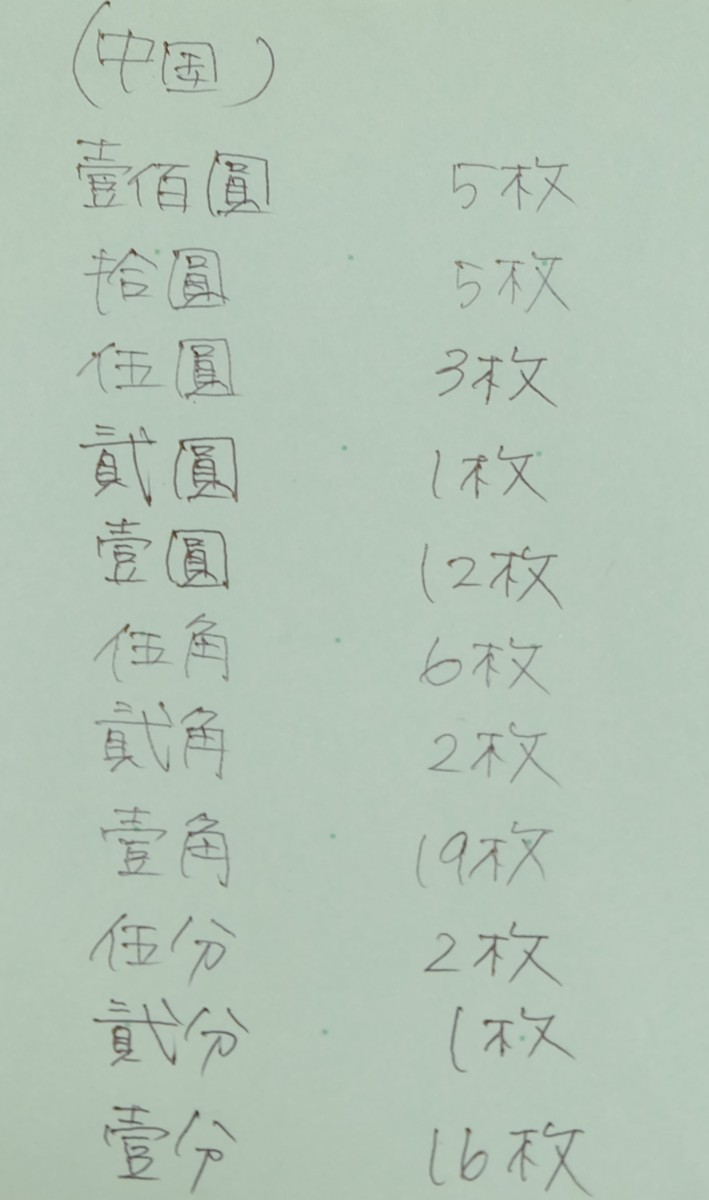 (中国)
壹佰圓 5枚
拾圓 5枚
伍圓 3枚
貳圓 1枚
壹圓 12枚
伍角 6枚
貳角 2枚
壹角 19枚
伍分 2枚
貳分 1枚
壹分 16枚